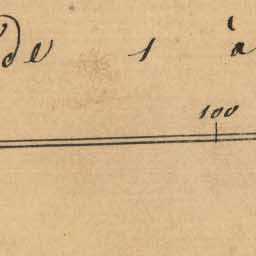 de 1 à
100